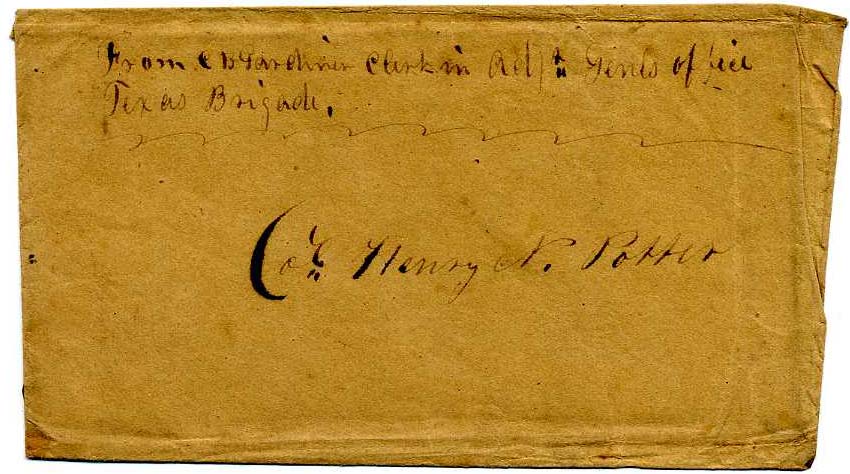 From C D Gardiner Clerk in Adjt Genls office
Texas Brigade.
Col Henry N. Potter